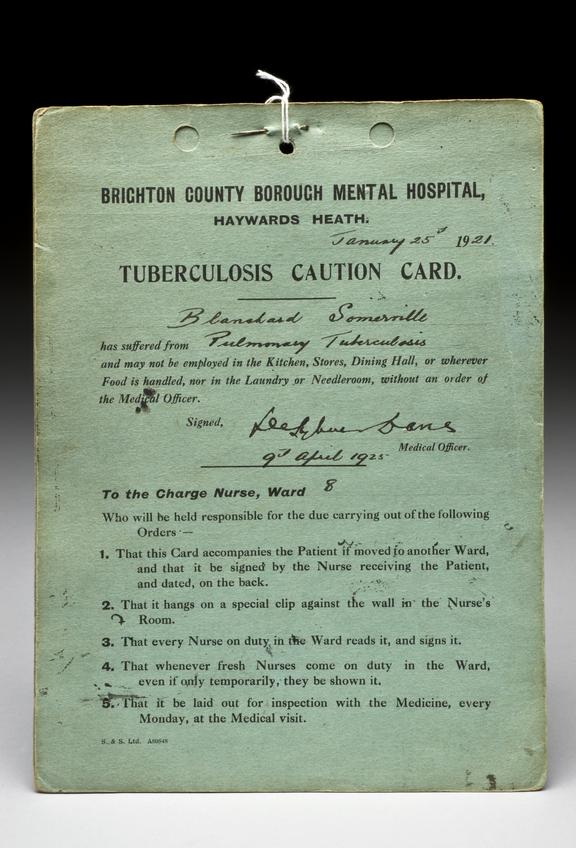 BRIGHTON COUNTY BOROUGH MENTAL HOSPITAL,
HAYWARDS HEATH.
January 25th 1921.
TUBERCULOSIS CAUTION CARD.
Blanchard Somerville
has suffered from Pulmonary Tuberculosis
and may not be employed in the Kitchen, Stores, Dining Hall, or wherever
Food is handled, nor in the Laundry or Needleroom, without an order of
the Medical Officer.
Signed,
Medical Officer.
9th April 1925
To the Charge Nurse, Ward 8
Who will be held responsible for the due carrying out of the following
Orders:—
1. That this Card accompanies the Patient if moved to another Ward,
and that it be signed by the Nurse receiving the Patient,
and dated, on the back.
2. That it hangs on a special clip against the wall in the Nurse's
Room.
3. That every Nurse on duty in the Ward reads it, and signs it.
4. That whenever fresh Nurses come on duty in the Ward,
even if only temporarily, they be shown it.
5. That it be laid out for inspection with the Medicine, every
Monday, at the Medical visit.
S. & S. Ltd.